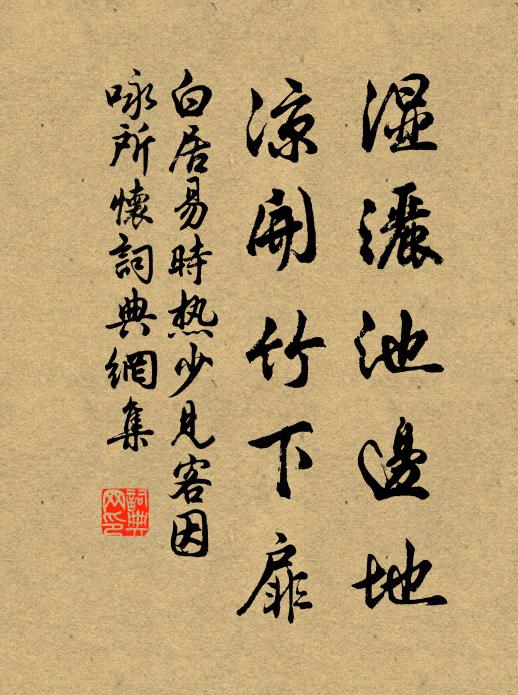 湿灑池邊地
凉開竹下扉
白居易時热少見客因
咏所懷詞典網集
詞典網印